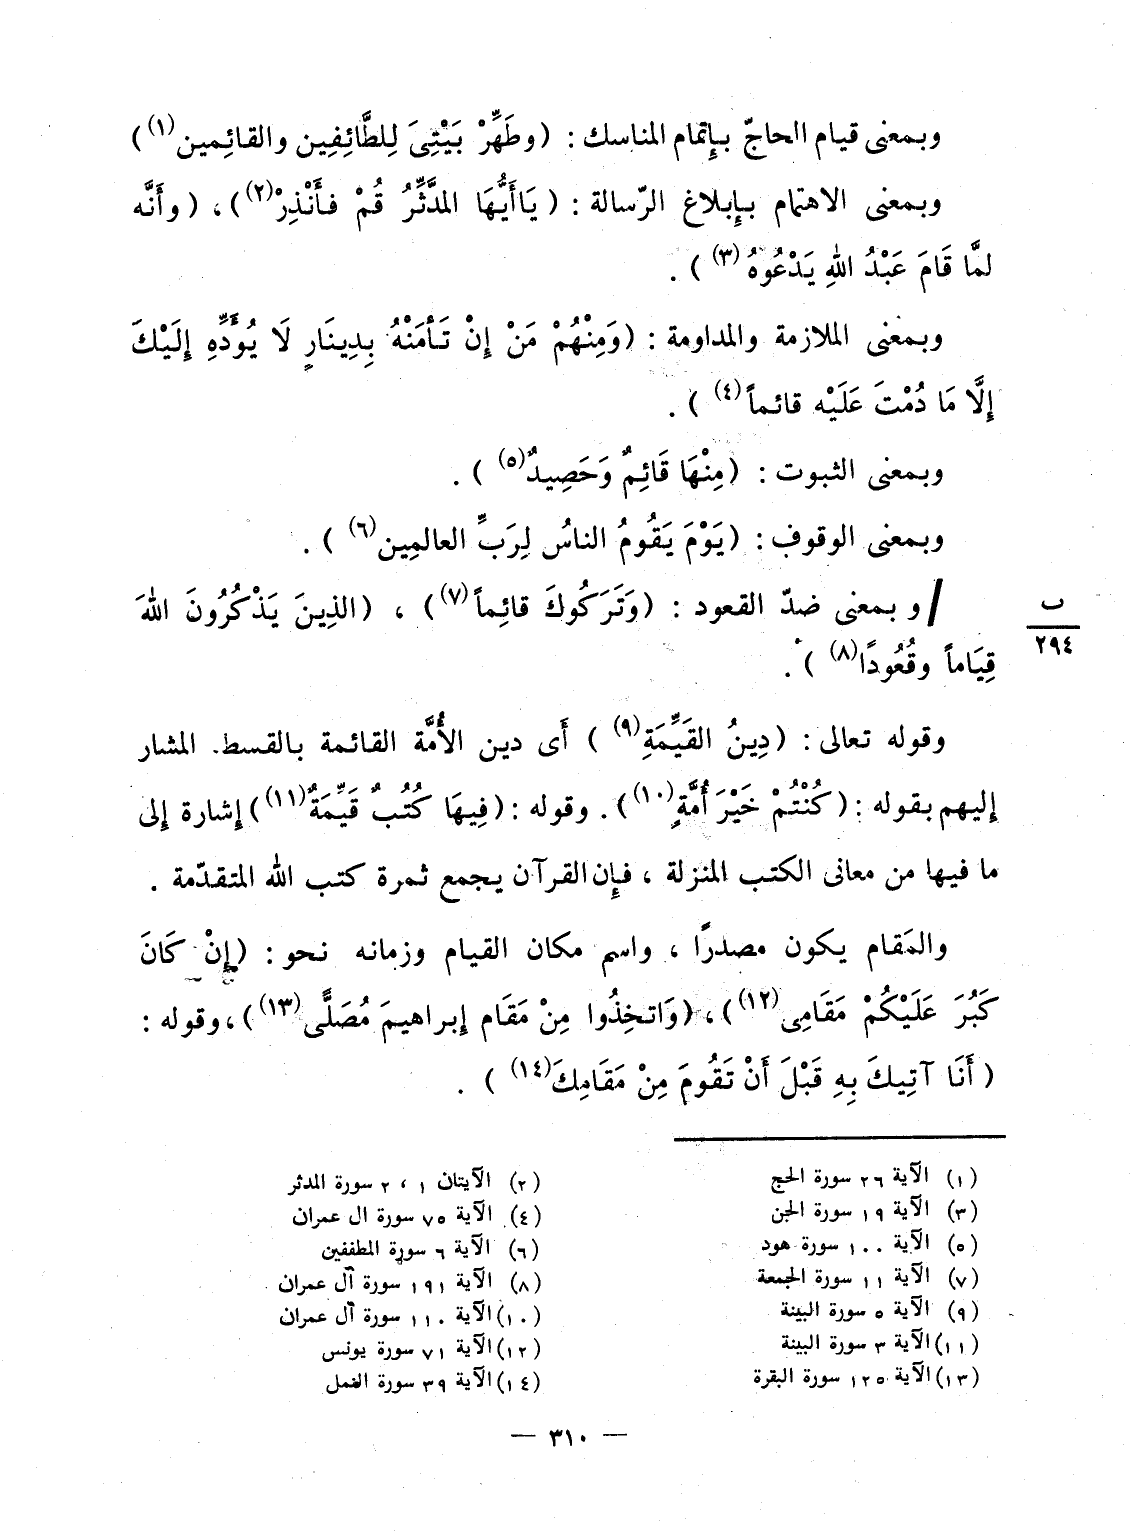 وبمعنى قيام الحاجّ بإتمام المناسك : (وطَهِّرْ بَيْتِىَ لِلطَّائِفِين والقائِمين(١))
وبمعنى الاهتمام بإبلاغ الرّسالة : ( يَاأَيُّهَا المدَّثِّرُ قُمْ فأَنْذِرْ(٢)) ، ( وأَنَّه
لمَّا قَامَ عَبْدُ اللهِ يَدْعُوهُ(٣) ) .
وبمعنى الملازمة والمداومة : (وَمِنْهُمْ مَنْ إِنْ تَأمَنْهُ بِدِينَارٍ لَا يُؤَدِّهِ إِلَيْكَ
إِلَّا مَا دُمْتَ عَلَيْه قائماً(٤) ) .
وبمعنى الثبوت : (مِنْهَا قَائِمٌ وَحَصِيدٌ(٥) ) .
وبمعنى الوقوف : (يَوْمَ يَقُومُ الناسُ لِرَبِّ العالمِين(٦) ) .
/ و بمعنى ضدّ القعود : (وَتَرَكُوكَ قائماً(٧)) ، (الذِينَ يَذْكُرُونَ اللهَ
ب
٢٩٤
قِيَاماً وقُعُودًا(٨) ) .
وقوله تعالى : (دِينُ القَيِّمَةِ(٩) ) أَى دين الأُمَّة القائمة بالقسط. المشار
إليهم بقوله : (كُنْتُمْ خَيْرَ أُمَّةٍ(١٠)) . وقوله : (فِيهَا كُتُبٌ قَيِّمَةٌ(١١)) إشارة إلى
ما فيها من معانى الكتب المنزلة ، فإن القرآن يجمع ثمرة كتب الله المتقدّمة .
والمَقام يكون مصدرًا ، واسم مكان القيام وزمانه نحو : (إِنْ كَانَ
كَبُرَ عَلَيْكُمْ مَقَامِى(١٢)) ، (وَاتخِذُوا مِنْ مَقَام إبراهيمَ مُصَلًّى(١٣)) ، وقوله :
( أَنَا آتِيكَ بِهِ قَبْلَ أَنْ تَقُومَ مِنْ مَقَامِكَ(١٤) ) .
(١) الآية ٢٦ سورة الحج
(٢) الآيتان ١ ، ٢ سورة المدثر
(٣) الآية ١٩ سورة الجن
(٤) الآية ٧٥ سورة ال عمران
(٥) الآية ١٠٠ سورة هود
(٦) الآية ٦ سورة المطففين
(٧) الآية ١١ سورة الجمعة
(٨) الآية ١٩١ سورة آل عمران
(٩) الآية ٥ سورة البينة
(١٠) الآية ١١٠ سورة آل عمران
(١١) الآية ٣ سورة البينة
(١٢) الآية ٧١ سورة يونس
(١٣) الآية ١٢٥ سورة البقرة
(١٤) الآية ٣٩ سورة النمل
— ٣١٠ —